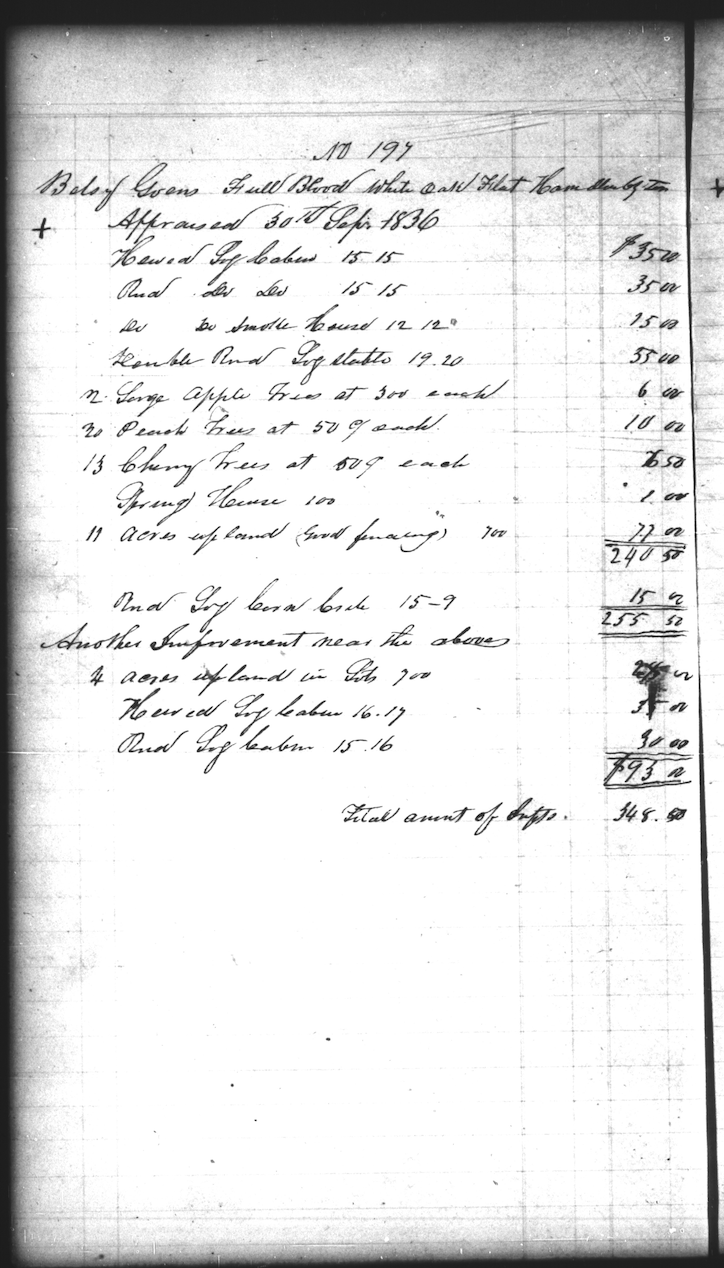 No 197
Betsy Goens Full Blood White Oak Flat Hamilton Cty Ten
+ Appraised 30th Sepr 1836
Hewed Log Cabin 15 15 $35 00
Rnd Do Do 15 15 35 00
Do Do Smoke House 12 12 15 00
Double Rnd Log stable 19.20 55 00
2 Large Apple Trees at 300 each 6 00
20 Peach Trees at 50 ¢ each 10 00
13 Cherry Trees at 50 ¢ each 6 50
Spring House 100 1 00
11 acres upland (Good fencing) 700 77 00
240 50
Rnd Log Corn Crib 15-9 15 00
255 50
Another Improvement near the above
4 acres upland in Lots 700 28 00
Hewed Log Cabin 16.17 35 00
Rnd Log Cabin 15.16 30 00
$93 00
Total amnt of Impts. 348.50